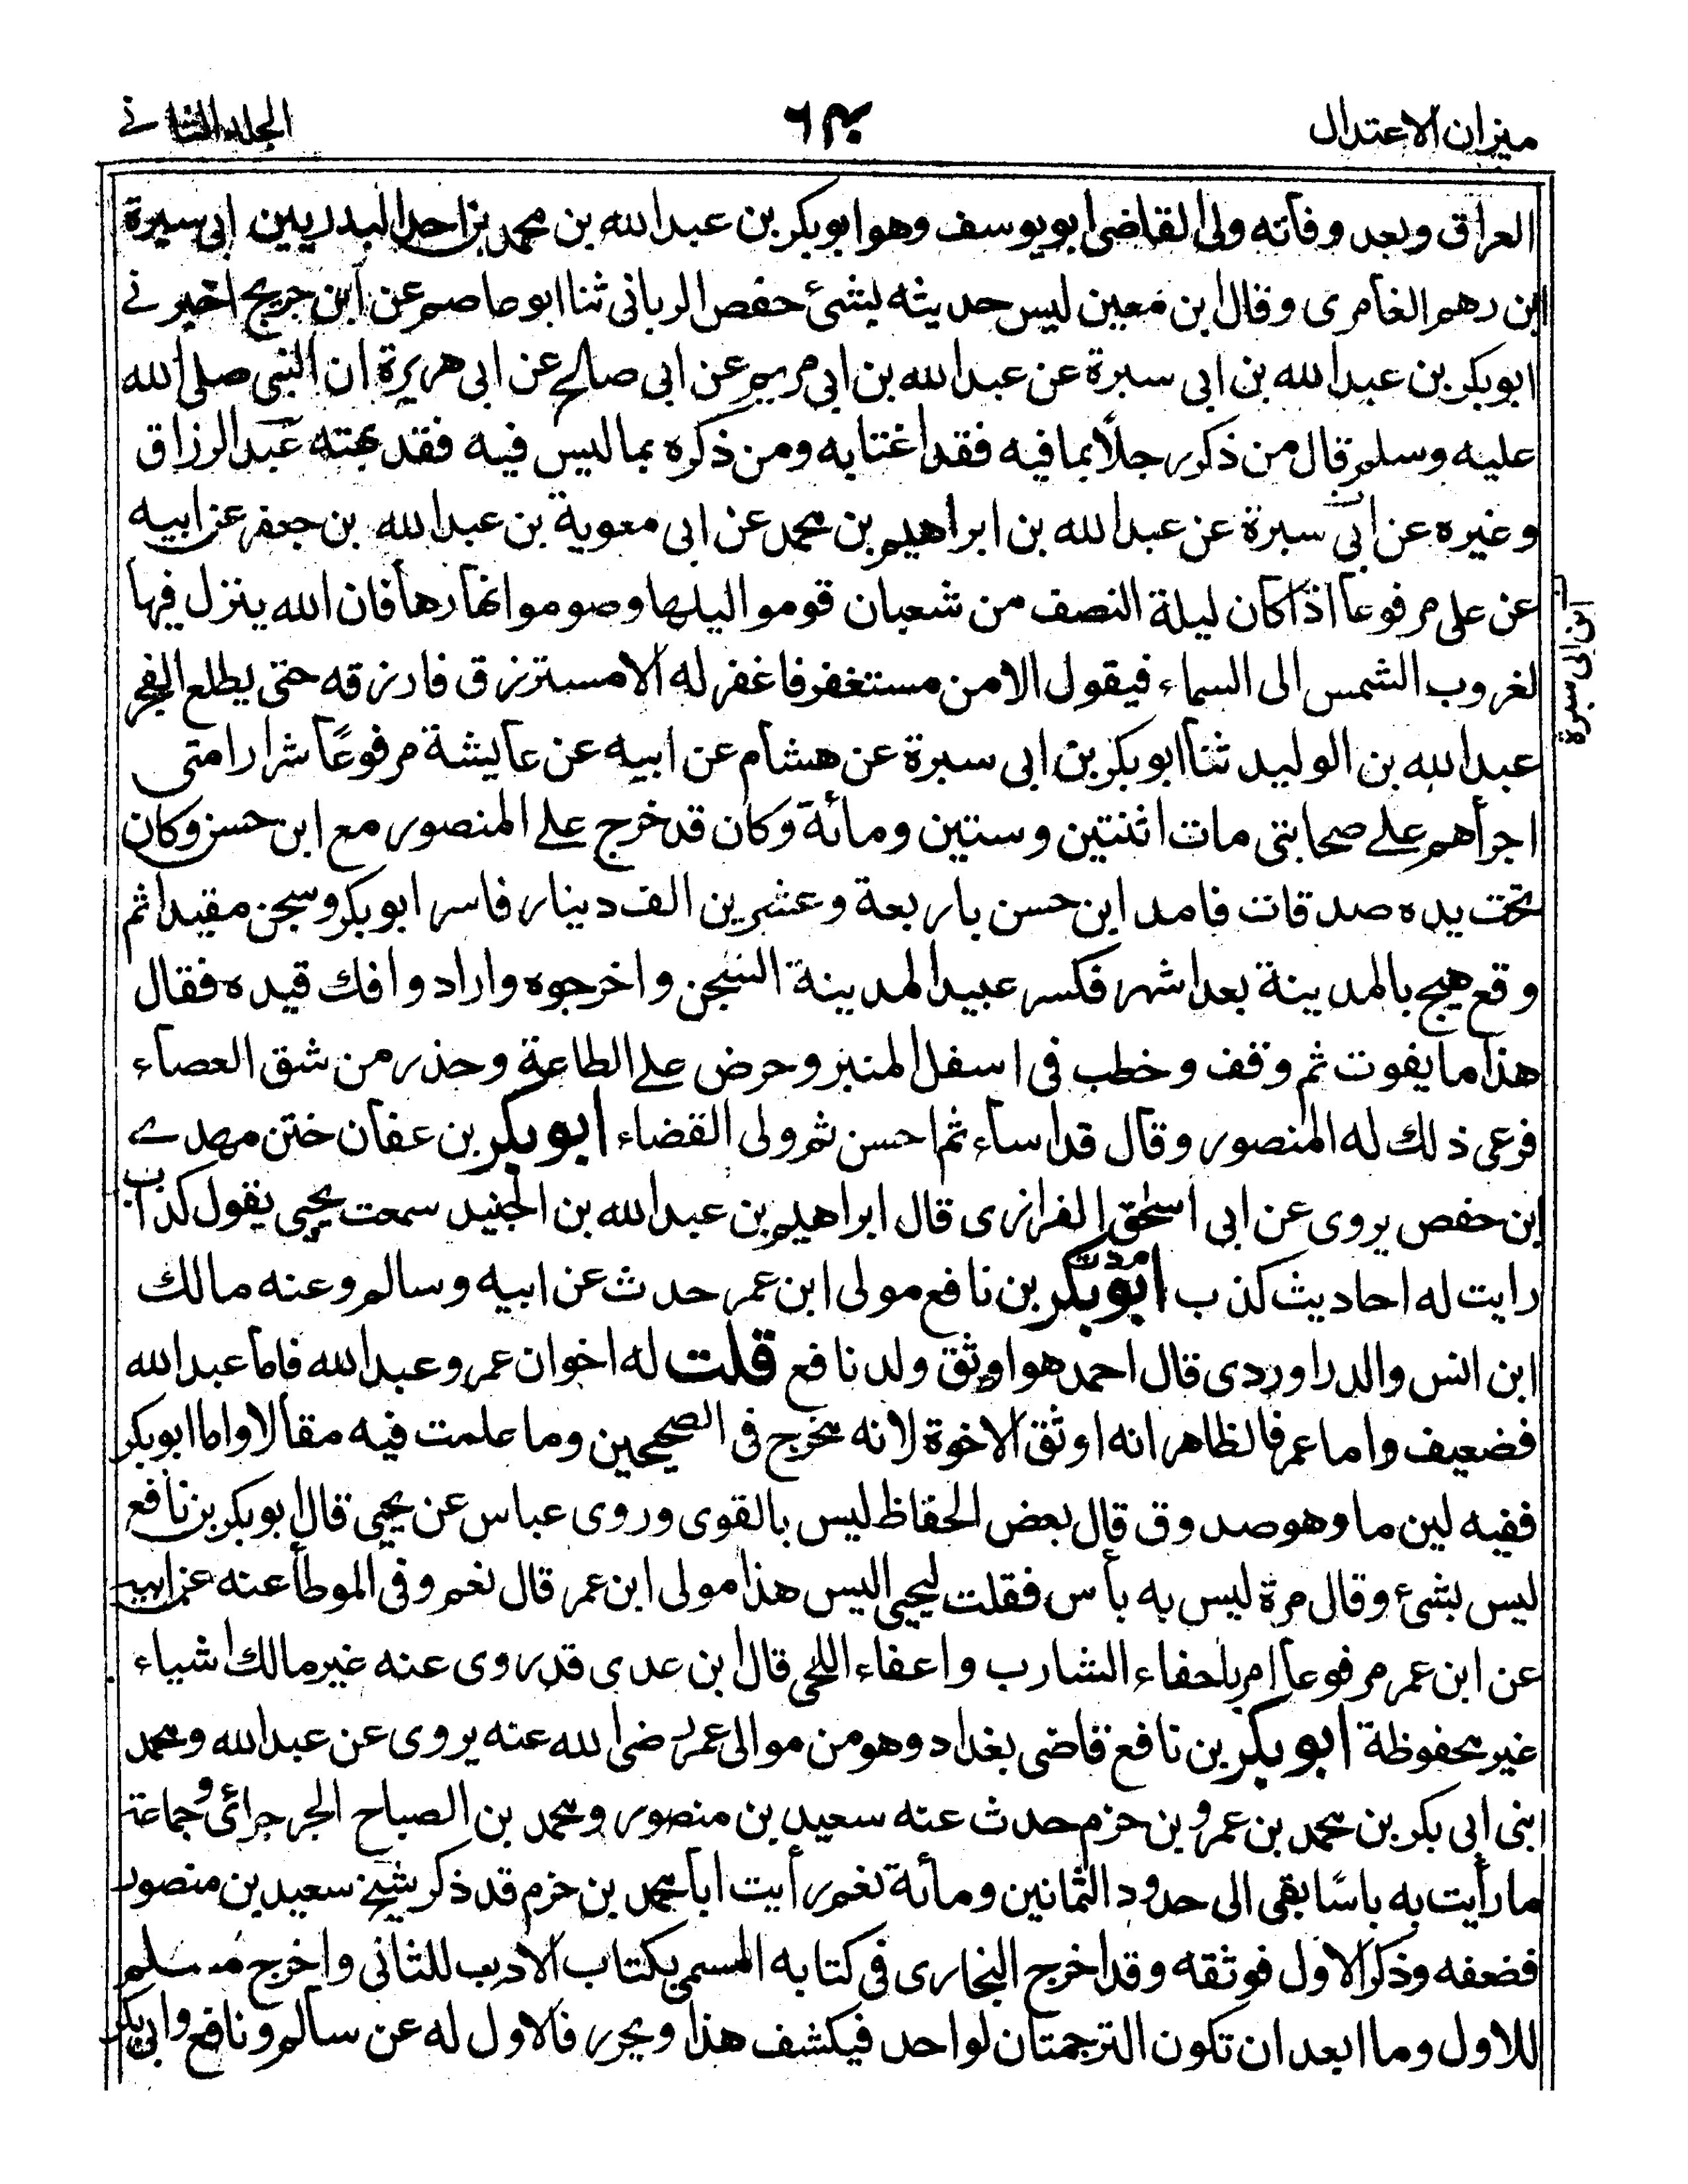 ميزان الاعتدال
الجلد الثانى
العراق وبعد وفاته ولى القاضى ابو يوسف وهو ابو بكر بن عبد الله بن محمد بن احد البدريين ابى سبرة
ابن رهم الغامرى وقال ابن معين ليس حديثه بشئ حفص الربانى ثنا ابو عاصم عن ابن جريج اخبرنى
ابو بكر بن عبد الله بن ابى سبرة عن عبد الله بن ابى مريم عن ابى صالح عن ابى هريرة ان النبى صلى الله
عليه وسلم قال من ذكر رجلاً بما فيه فقد اغتابه ومن ذكره بما ليس فيه فقد بهته عبد الرزاق
وغيره عن ابى سبرة عن عبد الله بن ابراهيم بن محمد عن ابى معوية بن عبد الله بن جعفر عن ابيه
عن على مرفوعا اذا كان ليلة النصف من شعبان قوموا ليلها وصوموا نهارها فان الله ينزل فيها
لغروب الشمس الى السماء فيقول الا من مستغفر فاغفر له الا مسترزق فارزقه حتى يطلع الفجر
ابن ابى سبرة
عبد الله بن الوليد ثنا ابو بكر بن ابى سبرة عن هشام عن ابيه عن عايشة مرفوعًا شرار امتى
اجرأهم على صحابتى مات اثنتين وستين ومائة وكان قد خرج على المنصور مع ابن حسن وكان
تحت يده صدقات فامد ابن حسن باربعة وعشرين الف دينار فاسر ابو بكر وسجن مقيدا ثم
وقع هيج بالمدينة بعد اشهر فكسر عبيد المدينة السجن واخرجوه وارادوا فك قيده فقال
هذا ما يفوت ثم وقف وخطب فى اسفل المنبر وحرض على الطاعة وحذر من شق العصاء
فرعى ذلك له المنصور وقال قد اساء ثم احسن ثم ولى القضاء ابو بكر بن عفان ختن مهدے
ابن حفص يروى عن ابى اسحق الفرازى قال ابراهيم بن عبد الله بن الجنيد سمعت يحيى يقول كذاب
رايت له احاديث كذب ابو بكر بن نافع مولى ابن عمر حدث عن ابيه وسالم وعنه مالك
ابن انس والدراوردى قال احمد هو اوثق ولد نافع قلت له اخوان عمر وعبد الله فاما عبد الله
فضعيف واما عمر فالظاهر انه اوثق الاخوة لانه مخرج فى الصحيحين وما علمت فيه مقالا واما ابو بكر
ففيه لين ما وهو صدوق قال بعض الحفاظ ليس بالقوى وروى عباس عن يحيى قال ابو بكر بن نافع
ليس بشئ وقال مرة ليس به بأس فقلت ليحيى اليس هذا مولى ابن عمر قال نعم وفى الموطأ عنه عن ابيه
عن ابن عمر مرفوعا امر باحفاء الشارب واعفاء اللحى قال ابن عدى قد روى عنه غير مالك اشياء
غير محفوظة ابو بكر بن نافع قاضى بغداد وهو من موالى عمر رضى الله عنه يروى عن عبد الله ومحمد
ابنى ابى بكر بن محمد بن عمرو بن حزم حدث عنه سعيد بن منصور ومحمد بن الصباح الجرجرائى وجماعة
ما رأيت به باسًا بقى الى حدود الثمانين ومائة نعم رأيت ابا محمد بن حزم قد ذكر شيخ سعيد بن منصور
فضعفه وذكر الاول فوثقه وقد اخرج البخارى فى كتابه المسمى بكتاب الادب للثانى واخرج مسلم
للاول وما ابعد ان تكون الترجمتان لواحد فيكشف هذا ويحرر فالاول له عن سالم ونافع وابى بكر